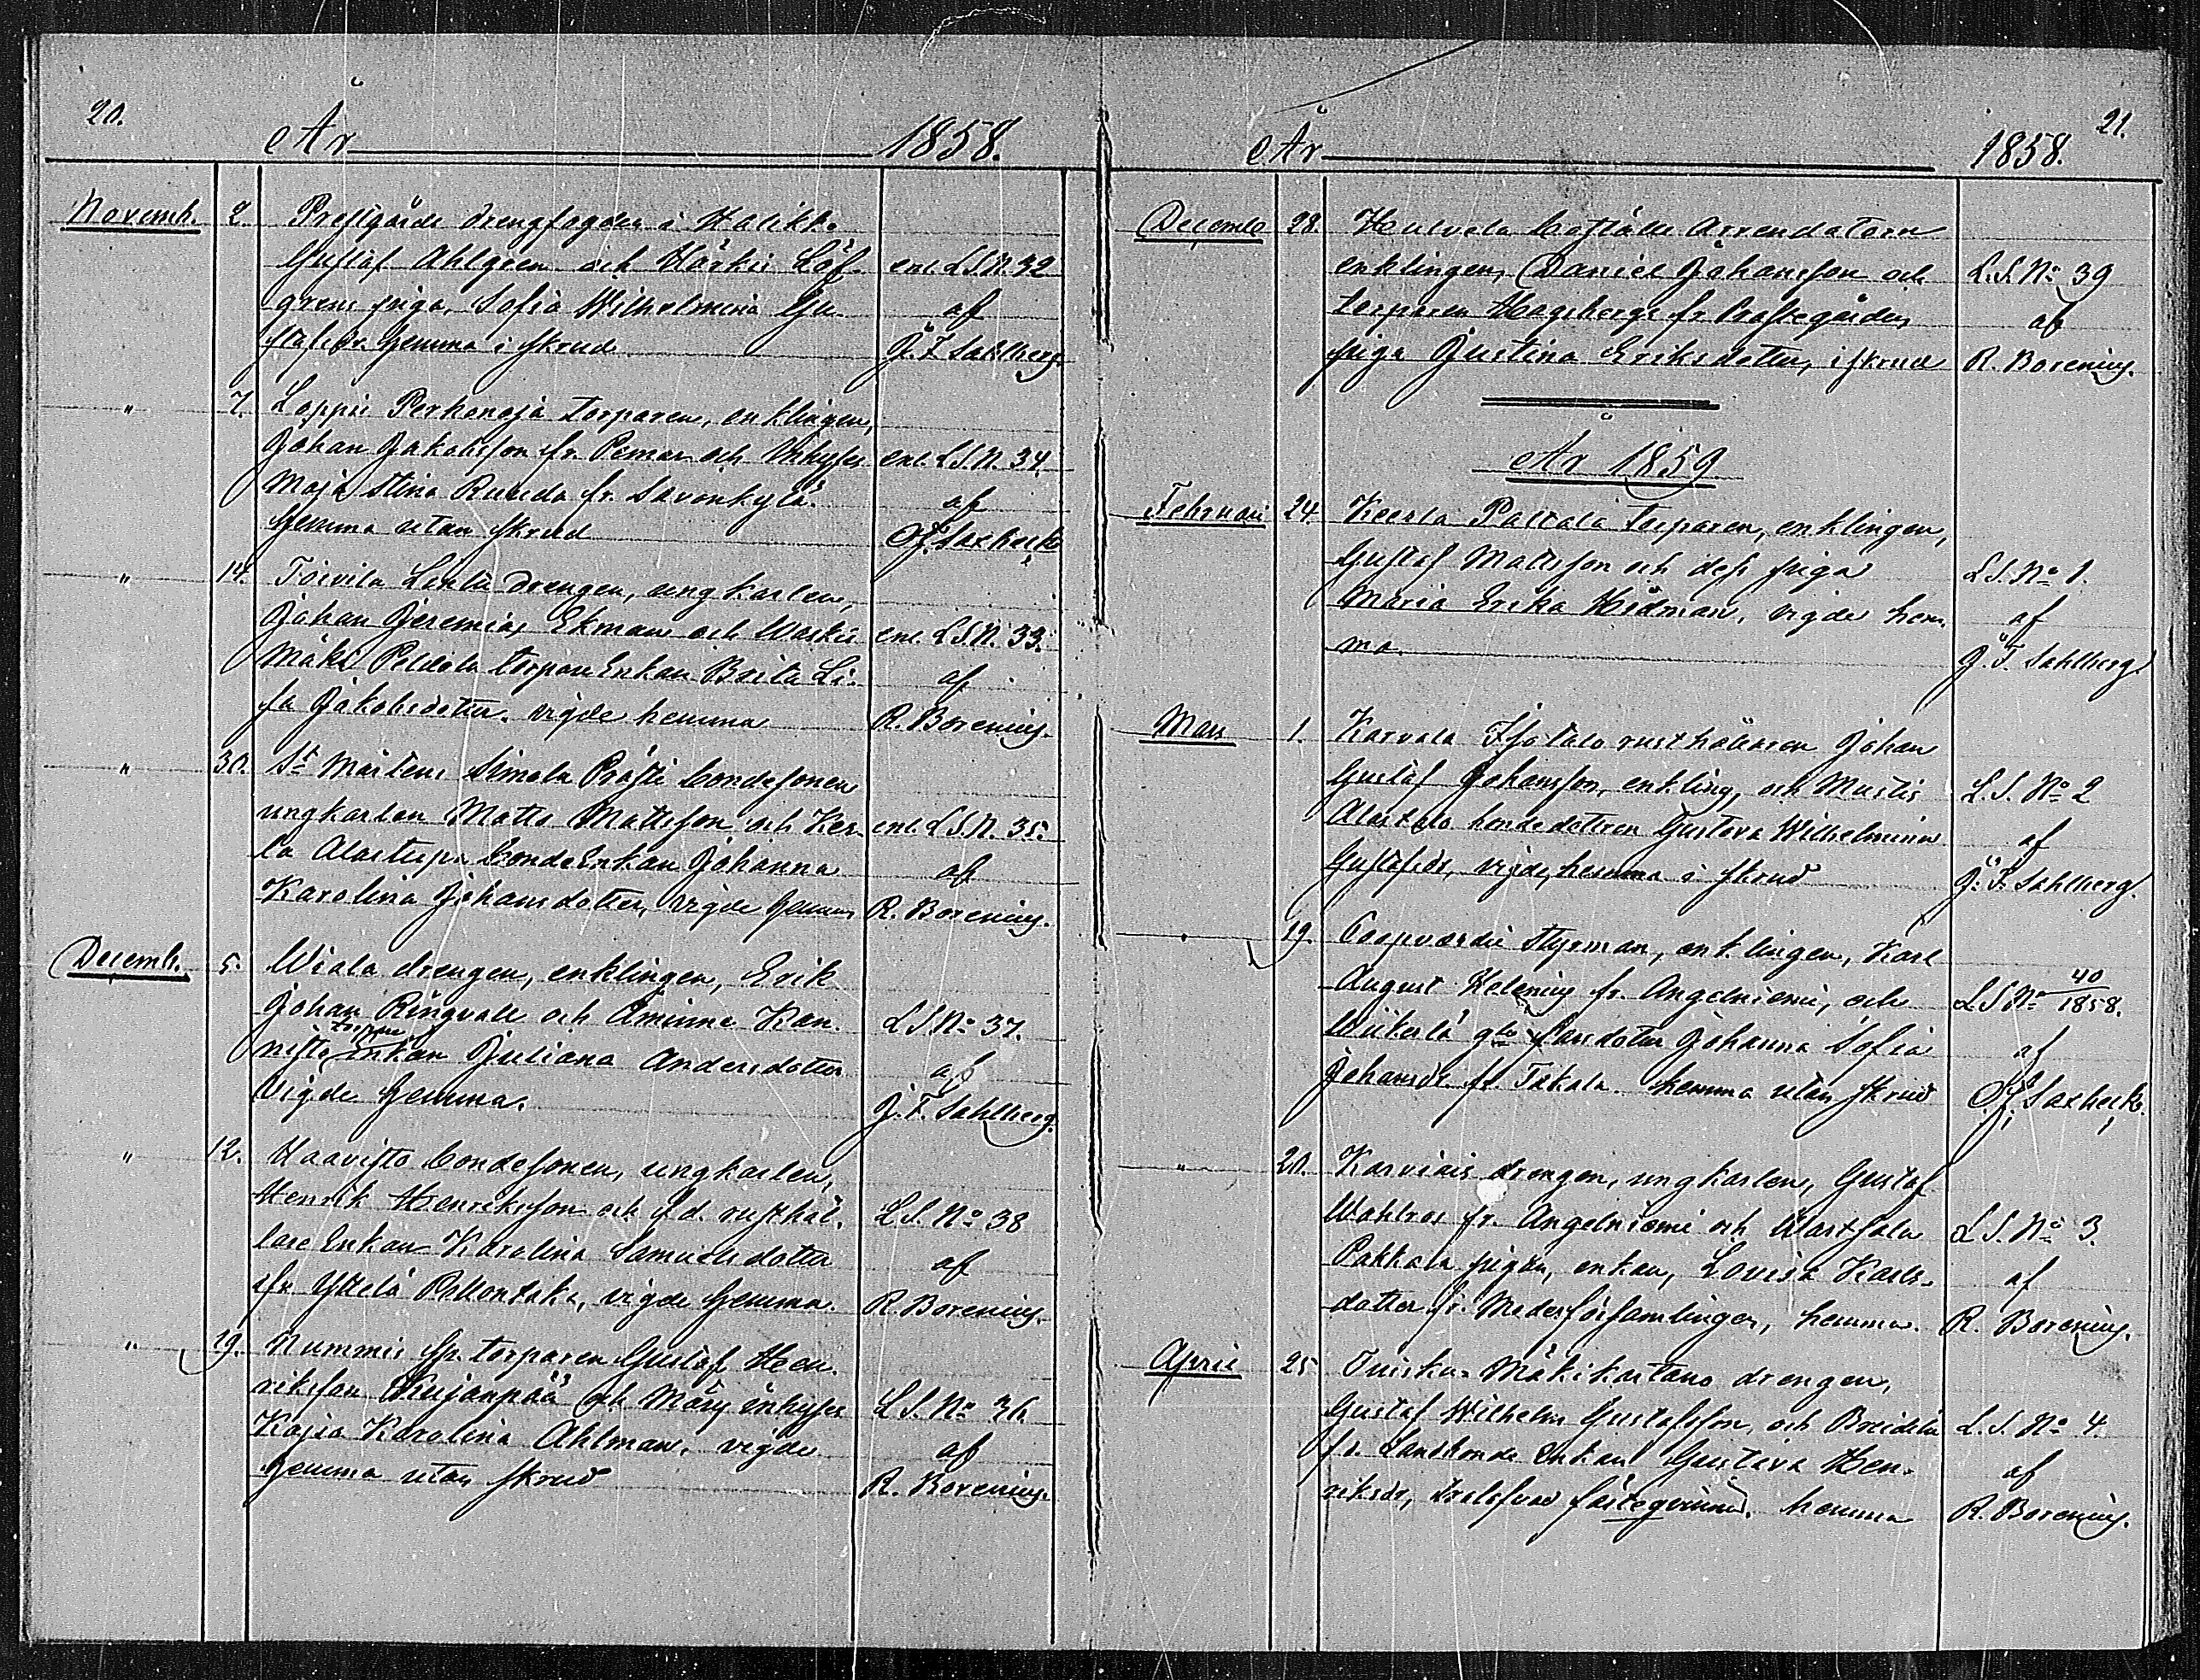 20.
År 1858.
Novemb. 2. Prestgårds drengfogden i Halikko
Gustaf Ahlgren och Härkis Löf-
enl. L.S.N. 32
grens piga, Sofia Wilhelmina Gu-
af
stafsdr. hemma i skrud
J. F. Sahlberg.
" 7. Loppis Perhenoja torparen, enklingen,
Johan Jakobsson fr. Pemar och Inhyses
enl. L.S.N. 34.
Maja Stina Runda fr. Savonkylä.
af
hemma utan skrud
O.J. Saxbeck
" 14. Toivila drengen, ungkarlen,
Johan Jeremias Ekman och
enl. L.S.N. 33.
Mäki Peldola torpare Enkan Brita Li-
af
sa Jakobsdotter. vigde hemma
R. Borenius.
" 30. St Mårtens Simola Prästi bondesonen
ungkarlen Matts Mattsson och Ker-
enl. L.S.N. 35.
la Alastupa bonde Enkan Johanna
af
Karolina Johansdotter, vigde hemma
R. Borenius.
Decemb. 5. Wiala drengen, enklingen, Erik
Johan Ringvall och Åminne Kan-
L.S. No 37.
nisto torpare enkan Juliana Andersdotter
af
Vigde hemma.
J. F. Sahlberg.
" 12. Haavisto bondesonen, ungkarlen,
Henrik Henriksson och f.d. rusthål-
L.S. No 38
lare Enkan Karolina Samuelsdotter
af
fr. Yttelä, vigde hemma.
R. Borenius.
" 19. Nummis torparen Gustaf Hen-
riksson Kujanpää och Märy inhyses
L.S. No 36.
Kajsa Karolina Ahlman, vigde
af
hemma utan skrud
R. Borenius.
21.
År 1858.
Decemb 28. Bostälts Arrendatorn
enklingen, Daniel Johansson och
L.S. No 39
torparen Hagsbergs fr. Prästegården
af
piga Justina Eriksdotter, i skrud
R. Borenius.
År 1859
Februari 24. Keerla Paltala torparen, enklingen,
Gustaf Mattsson och dess piga
L.S. No 1.
Maria Erika Hidman, vigde hem-
af
ma.
J. F. Sahlberg
Mars 1. Karvala Isotalo rusthållaren Johan
Gustaf Johansson, enkling, och Mustis
L.S. No 2
Alastalo bondedottren Gustava Wilhelmina
af
Gustafsdr, vigde hemma i skrud
J. F. Sahlberg.
" 19. Coopvardie styrman, enklingen, Karl
August Helenius fr. Angelniemi, och
L.S. No 40/1858.
Wiikerlä dotter Johanna Sofia
af
Johansdr. fr. Takala. hemma utan skrud
O.J. Saxbeck.
" 20. Karviais drengen, ungkarlen, Gustaf
Wahlros fr. Angelniemi och
L.S. No 3.
Pakkala pigan, enkan, Lovisa Karls-
af
dotter fr. Moderförsamlingen, hemma.
R. Borenius.
April 25 Tuisku Mäkikartano drengen,
Gustaf Wilhelm Gustafsson, och
L.S. No 4.
f.d. Landbonde Enkan Gustava Hen-
af
riksdr, fästeqvinna. hemma
R. Borenius.